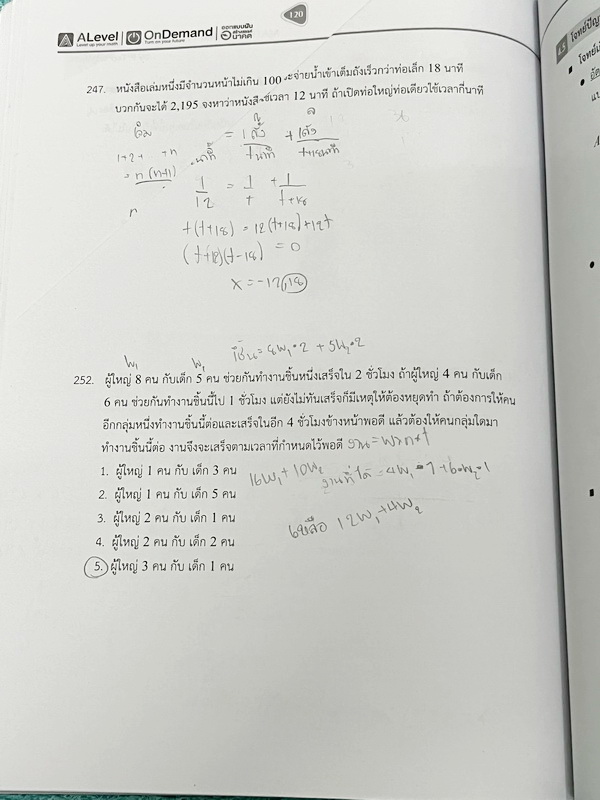 120
ALevel OnDemand ออกแบบฝัน สร้างสรรค์ อนาคต
Level up your math Turn on your future
247. หนังสือเล่มหนึ่งมีจำนวนหน้าไม่เกิน 100 จะจ่ายน้ำเข้าเต็มถังเร็วกว่าท่อเล็ก 18 นาที
บวกกันจะได้ 2,195 จงหาว่าหนังสือ ใช้เวลา 12 นาที ถ้าเปิดท่อใหญ่ท่อเดียวใช้เวลากี่นาที
= 1 ถัง + 1 ถัง
นาที t นาที t+18 นาที
1+2+ +n
= n(n+1)
1/12 = 1/t + 1/t+18
n
t(t+18) = 12(t+18)+12t
(t+12)(t-18) = 0
x = -12, 18
= 8W₁•2 + 5W₂•2
W₁ W₂
252. ผู้ใหญ่ 8 คน กับเด็ก 5 คน ช่วยกันทำงานชิ้นหนึ่งเสร็จใน 2 ชั่วโมง ถ้าผู้ใหญ่ 4 คน กับเด็ก
6 คน ช่วยกันทำงานชิ้นนี้ไป 1 ชั่วโมง แต่ยังไม่ทันเสร็จก็มีเหตุให้ต้องหยุดทำ ถ้าต้องการให้คน
อีกกลุ่มหนึ่งทำงานชิ้นนี้ต่อและเสร็จในอีก 4 ชั่วโมงข้างหน้าพอดี แล้วต้องให้คนกลุ่มใดมา
ทำงานชิ้นนี้ต่อ งานจึงจะเสร็จตามเวลาที่กำหนดไว้พอดี
1. ผู้ใหญ่ 1 คน กับ เด็ก 3 คน
16W₁ + 10W₂
งานที่ได้ = 4W₁•1 + 6•W₂•1
2. ผู้ใหญ่ 1 คน กับ เด็ก 5 คน
3. ผู้ใหญ่ 2 คน กับ เด็ก 1 คน
เหลือ 12W₁+4W₂
4. ผู้ใหญ่ 2 คน กับ เด็ก 2 คน
5. ผู้ใหญ่ 3 คน กับ เด็ก 1 คน
4.5 โจทย์ปัญ